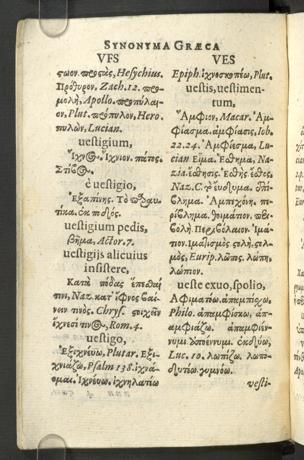 SYNONYMA GRÆCA
VES
σωον. περσὰς, Hesychius.
Πρόθυρον. Zach. 12. προ-
μολὴ, Apollo. προπύλαι-
ον, Plut. πρόπυλον, Hero
πυλὼν, Lucian.
uestigium,
Ἴχνος. Ἴχνιον. πάτος.
Στίβος.
è uestigio,
Ἐξαπίνης. Τὸ
τίκα. ἐκ ποδὸς.
uestigium pedis,
βῆμα, Actor. 7.
uestigijs alicuius
insistere,
Κατὰ πόδας
τινι, Naz. κατ' ἴχνος βαί-
νειν τινὸς. Chrys. στοιχεῖν
ἴχνεσί τινος, Rom. 4.
uestigo,
Ἐξιχνεύω, Plutar. Ἐξι-
χνιάζω, Psalm 138. ἰχνά-
ομαι. Ἰχνεύω. ἰχνηλατέω
VES
Epiph. ἰχνοσκοπέω, Plut.
uestis, uestimen-
tum,
Ἄμφιον, Macar. Ἀμ-
φίασμα. ἀμφίασις, Iob.
22. 24. Ἀμφίεσμα, Lu-
cian Εἷμα. Ἔσθημα, Na-
zia. ἔσθησις. Ἐσθὴς ἔσθος,
Naz. C. ἔνδυμα. ἐπί-
βλημα. Ἀμπεχόνη. πε-
ρίβλημα. ἱμάτιον. περι-
βολή. Περιβόλαιον. Ἱμά-
τιον. Ἱματισμὸς. στολὴ. στολ-
μὸς, Eurip. λῶπος. λώπη,
λώπιον.
ueste exuo, spolio,
Ἀφιματίω. ἀπαμπίσχω,
Philo. ἀπαμφίσκω. ἀπ-
αμφιάζω. ἀπαμφιέν-
νυμι. ἐκδύω,
Luc. 10. λωπίζω. λωπο-
δυτέω. γυμνόω.
vesti-